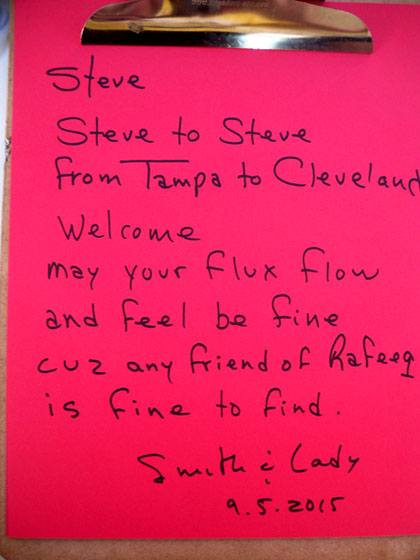 Steve
Steve to Steve
from Tampa to Cleveland
Welcome
may your flux flow
and feel be fine
cuz any friend of Rafeeq
is fine to find.
Smith & Lady
9.5.2015